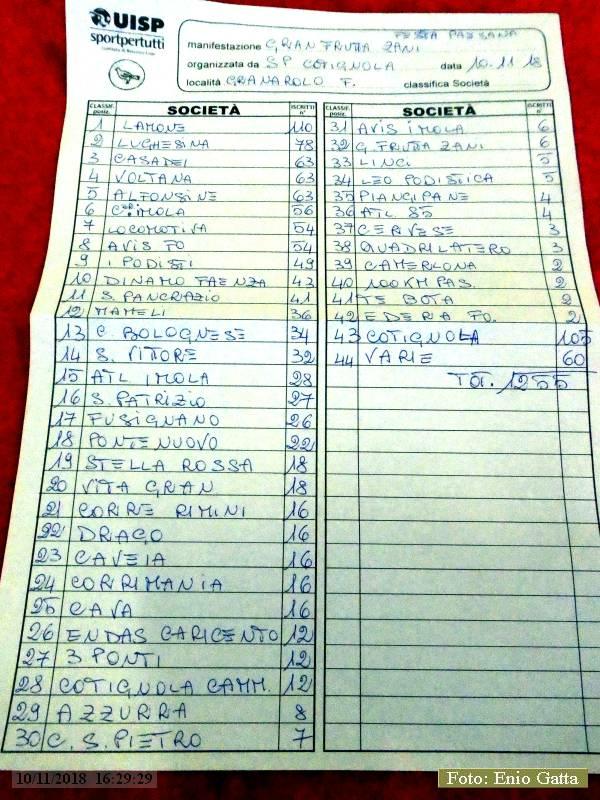 UISP
sportpertutti
FESTA PAESANA
manifestazione GRAN FRUTTA ZANI
organizzata da S P COTIGNOLA data 10.11 18
località GRANAROLO F. classifica Società
CLASSIF. posiz. SOCIETÀ ISCRITTI n°
1 LAMONE 110
2 LUGHESINA 78
3 CASADEI 63
4 VOLTANA 63
5 ALFONSINE 63
6 IMOLA 56
7 LOCOMOTIVA 54
8 AVIS FO 54
9 I PODISTI 49
10 DINAMO FAENZA 43
11 S. PANCRAZIO 41
12 MAMELI 36
13 C. BOLOGNESE 34
14 S. VITTORE 32
15 ATL IMOLA 28
16 S. PATRIZIO 27
17 FUSIGNANO 26
18 PONTENUOVO 22
19 STELLA ROSSA 18
20 VITA GRAN 18
21 CORRE RIMINI 16
22 DRAGO 16
23 CAVEIA 16
24 CORRIMANIA 16
25 CAVA 16
26 ENDAS CARICENTO 12
27 3 PONTI 12
28 COTIGNOLA CAMM. 12
29 AZZURRA 8
30 C. S. PIETRO 7
CLASSIF. posiz. SOCIETÀ ISCRITTI n°
31 AVIS IMOLA 6
32 G FRUTTA ZANI 6
33 LINCI 5
34 LEO PODISTICA 5
35 PIANCIPANE 4
36 ATL 85 4
37 CERVESE 3
38 QUADRILATERO 3
39 CAMERLONA 2
40 100 KM PAS. 2
41 TE BOTA 2
42 EDERA FO. 2
43 COTIGNOLA 105
44 VARIE 60
TOT. 1255
10/11/2018 16:29:29
Foto: Enio Gatta